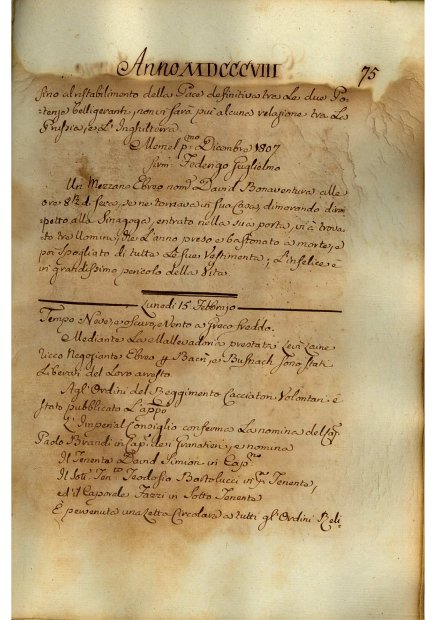 Anno MDCCCVIII 75
sino al ristabilimento della Pace definitiva tra le due Po-
tenze belligeranti, non vi sarà più alcuna relazione tra la
Prussia, e L'Inghilterra.
Memel p.mo Dicembre 1807
Federigo Guglielmo
Un Mezzano Ebreo nom.o David Bonaventura alle
ore 8½ d. sera, se ne tornava in sua Casa, dimorando dirim
petto alla Sinagoga, entrato nella sua porta, vi à trova
to tre Uomini, che L'anno preso e bastonato a morte, e
poi spogliato di tutte Le sue Vestimenta; L'infelice è
in grandissimo pericolo della Vita.
Lunedì 15 Febbrajo
Tempo Neve, e oscuro, e Vento a freddo.
Mediante La Mallevadoria prestata Levi
ricco Negoziante Ebreo Bacri, e Busnach sono stati
Liberati dal Loro arresto.
Agl'Ordini del Reggimento Cacciatori Volontari è
stato pubblicato L'app.o
L'Imperial Consiglio conferma La nomina del
Paolo Brandi in Cap. dei Granatieri, e nomina
Il Tenente David Simion in Cap.no
Il Sotto Ten.te Teodosio Bartolucci in Tenente,
ed il Caporale Fazzi in Sotto Tenente
È pervenuta una Letta Circolare a tutti gl'Ordini Reli-